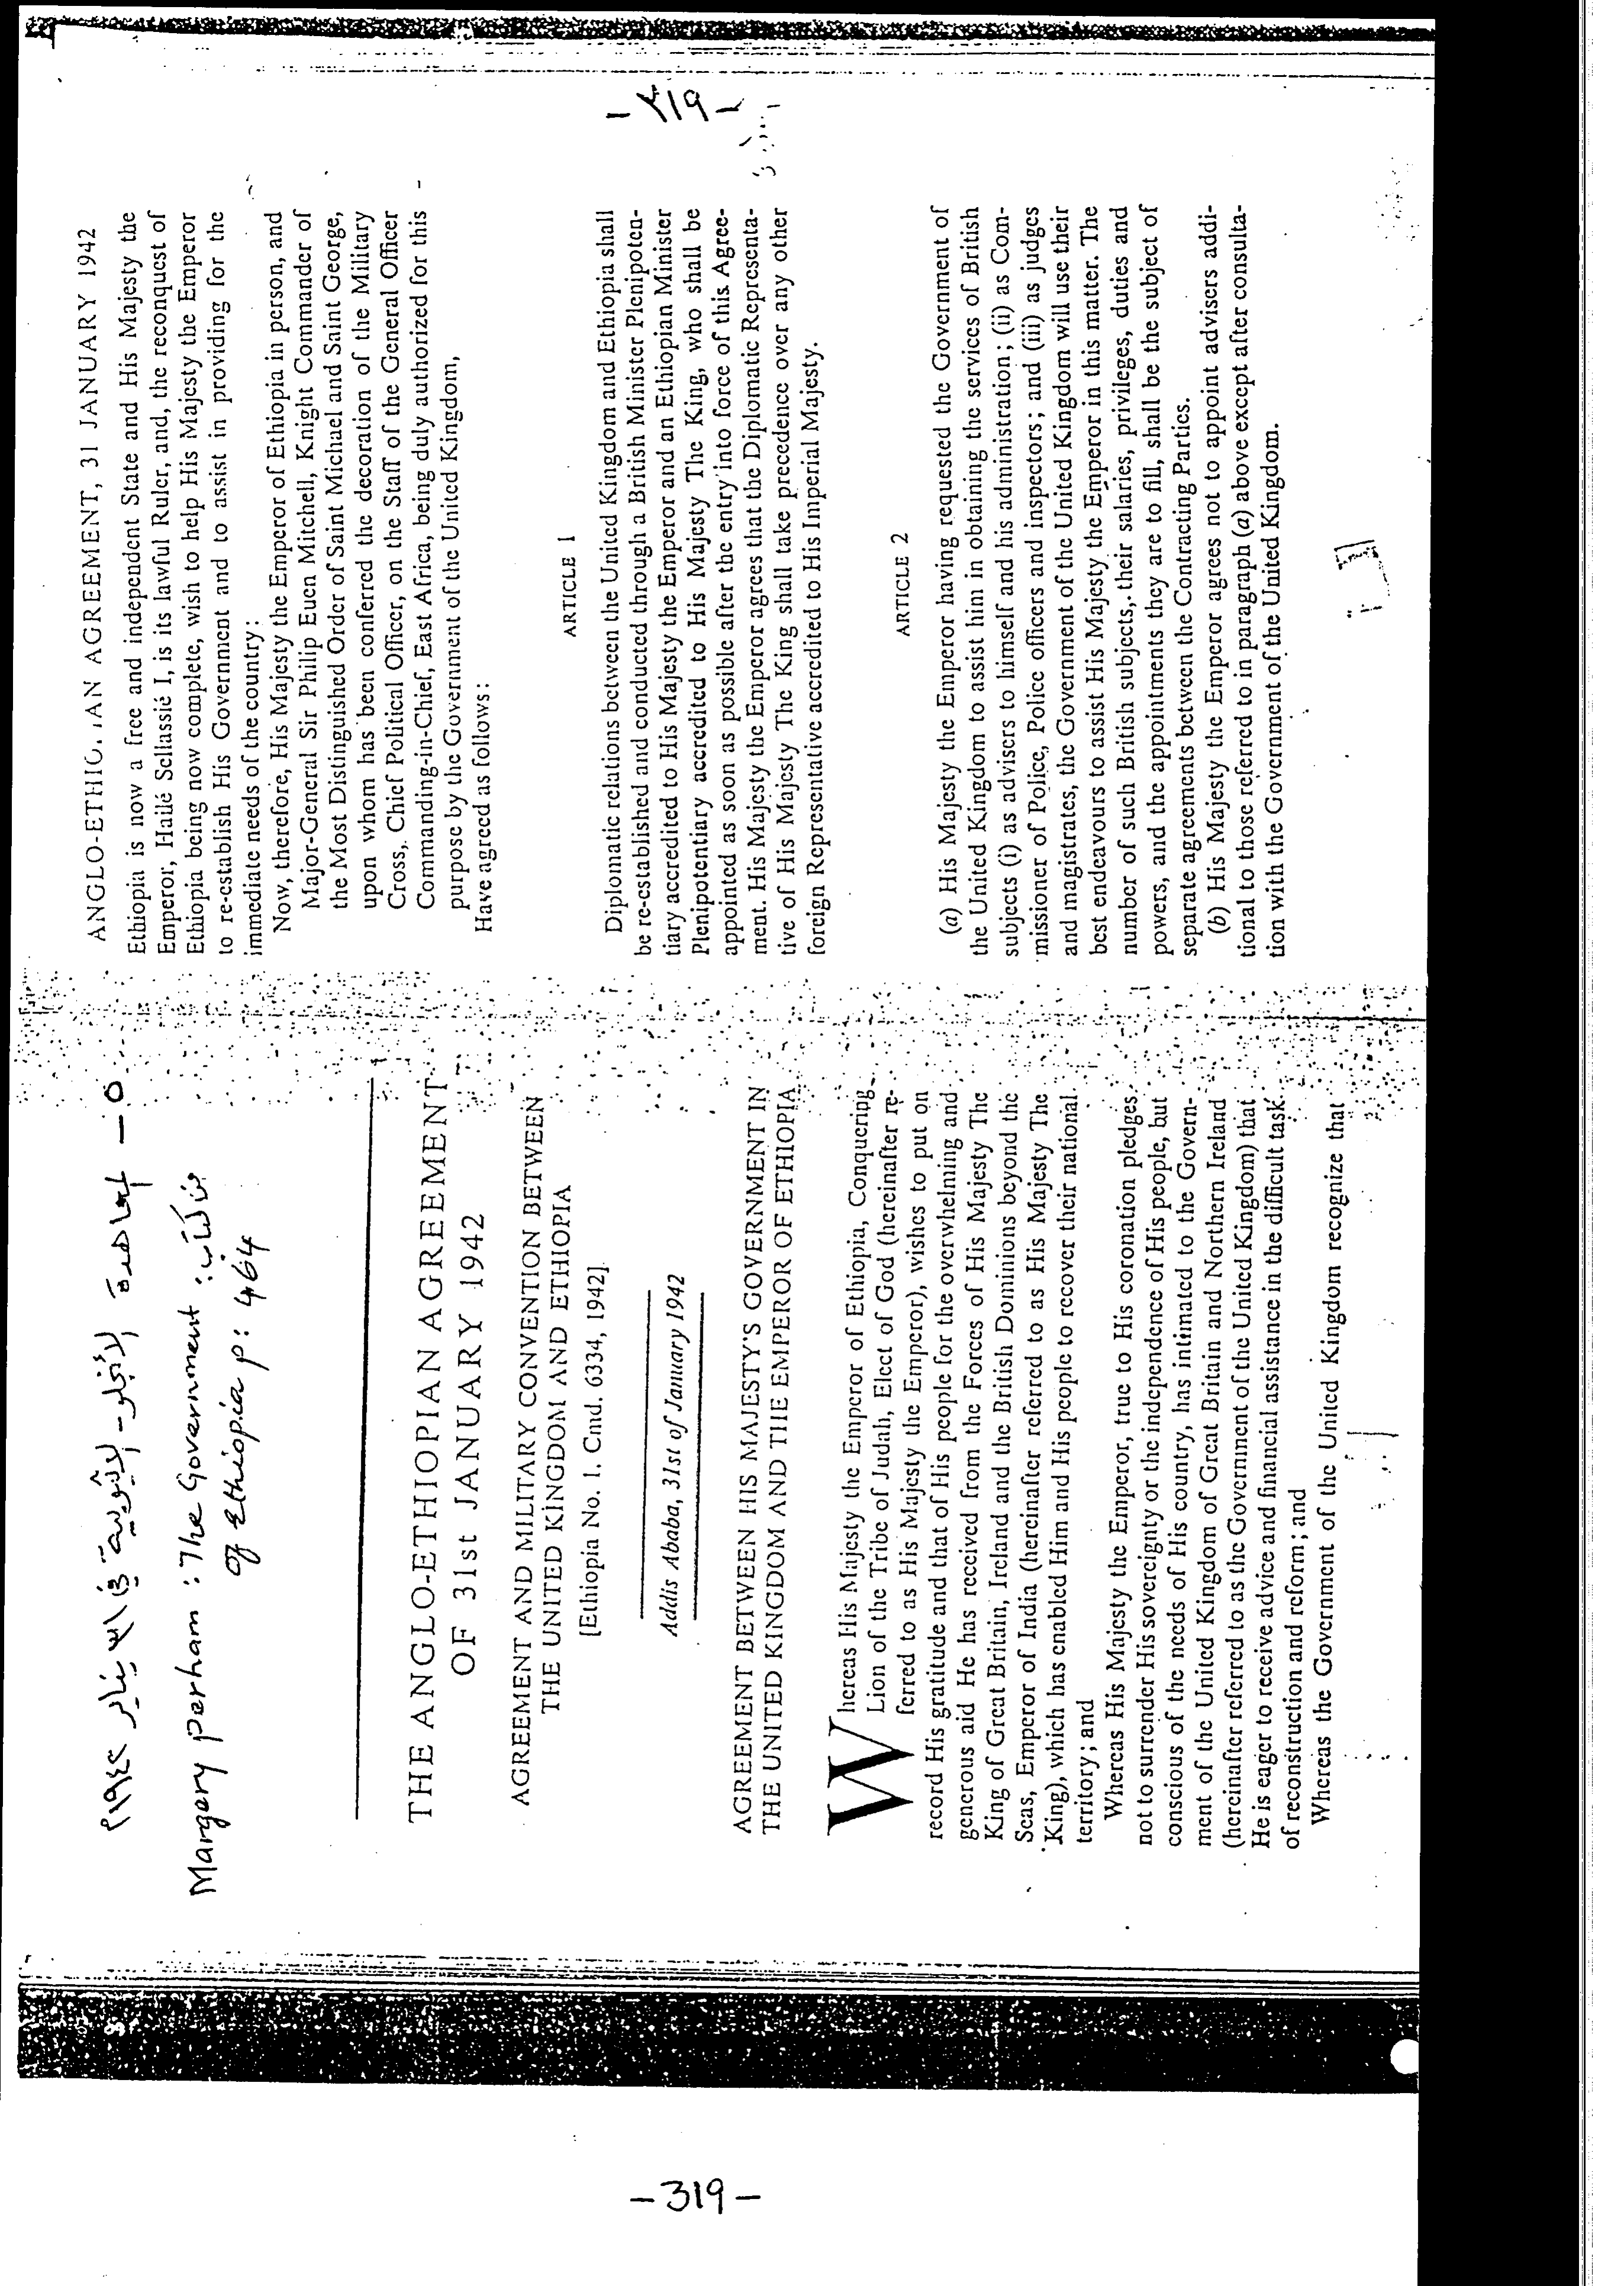 ٥ – معاهدة الأنجلو-الأثيوبية في ٣١ يناير ١٩٤٢م
من كتاب: Margary perham : The Government
of Ethiopia p: 464
THE ANGLO-ETHIOPIAN AGREEMENT
OF 31st JANUARY 1942
AGREEMENT AND MILITARY CONVENTION BETWEEN
THE UNITED KINGDOM AND ETHIOPIA
[Ethiopia No. 1. Cmd. 6334, 1942].
Addis Ababa, 31st of January 1942
AGREEMENT BETWEEN HIS MAJESTY'S GOVERNMENT IN
THE UNITED KINGDOM AND THE EMPEROR OF ETHIOPIA
Whereas His Majesty the Emperor of Ethiopia, Conquering
Lion of the Tribe of Judah, Elect of God (hereinafter re-
ferred to as His Majesty the Emperor), wishes to put on
record His gratitude and that of His people for the overwhelming and
generous aid He has received from the Forces of His Majesty The
King of Great Britain, Ireland and the British Dominions beyond the
Seas, Emperor of India (hereinafter referred to as His Majesty The
King), which has enabled Him and His people to recover their national
territory; and
Whereas His Majesty the Emperor, true to His coronation pledges,
not to surrender His sovereignty or the independence of His people, but
conscious of the needs of His country, has intimated to the Govern-
ment of the United Kingdom of Great Britain and Northern Ireland
(hereinafter referred to as the Government of the United Kingdom) that
He is eager to receive advice and financial assistance in the difficult task
of reconstruction and reform; and
Whereas the Government of the United Kingdom recognize that
ANGLO-ETHIOPIAN AGREEMENT, 31 JANUARY 1942
Ethiopia is now a free and independent State and His Majesty the
Emperor, Hailé Sellassié I, is its lawful Ruler, and, the reconquest of
Ethiopia being now complete, wish to help His Majesty the Emperor
to re-establish His Government and to assist in providing for the
immediate needs of the country:
Now, therefore, His Majesty the Emperor of Ethiopia in person, and
Major-General Sir Philip Euen Mitchell, Knight Commander of
the Most Distinguished Order of Saint Michael and Saint George,
upon whom has been conferred the decoration of the Military
Cross, Chief Political Officer, on the Staff of the General Officer
Commanding-in-Chief, East Africa, being duly authorized for this
purpose by the Government of the United Kingdom,
Have agreed as follows:
ARTICLE 1
Diplomatic relations between the United Kingdom and Ethiopia shall
be re-established and conducted through a British Minister Plenipoten-
tiary accredited to His Majesty the Emperor and an Ethiopian Minister
Plenipotentiary accredited to His Majesty The King, who shall be
appointed as soon as possible after the entry into force of this Agree-
ment. His Majesty the Emperor agrees that the Diplomatic Representa-
tive of His Majesty The King shall take precedence over any other
foreign Representative accredited to His Imperial Majesty.
ARTICLE 2
(a) His Majesty the Emperor having requested the Government of
the United Kingdom to assist him in obtaining the services of British
subjects (i) as advisers to himself and his administration; (ii) as Com-
missioner of Police, Police officers and inspectors; and (iii) as judges
and magistrates, the Government of the United Kingdom will use their
best endeavours to assist His Majesty the Emperor in this matter. The
number of such British subjects, their salaries, privileges, duties and
powers, and the appointments they are to fill, shall be the subject of
separate agreements between the Contracting Parties.
(b) His Majesty the Emperor agrees not to appoint advisers addi-
tional to those referred to in paragraph (a) above except after consulta-
tion with the Government of the United Kingdom.
- ٣١٩ -
- 319 -